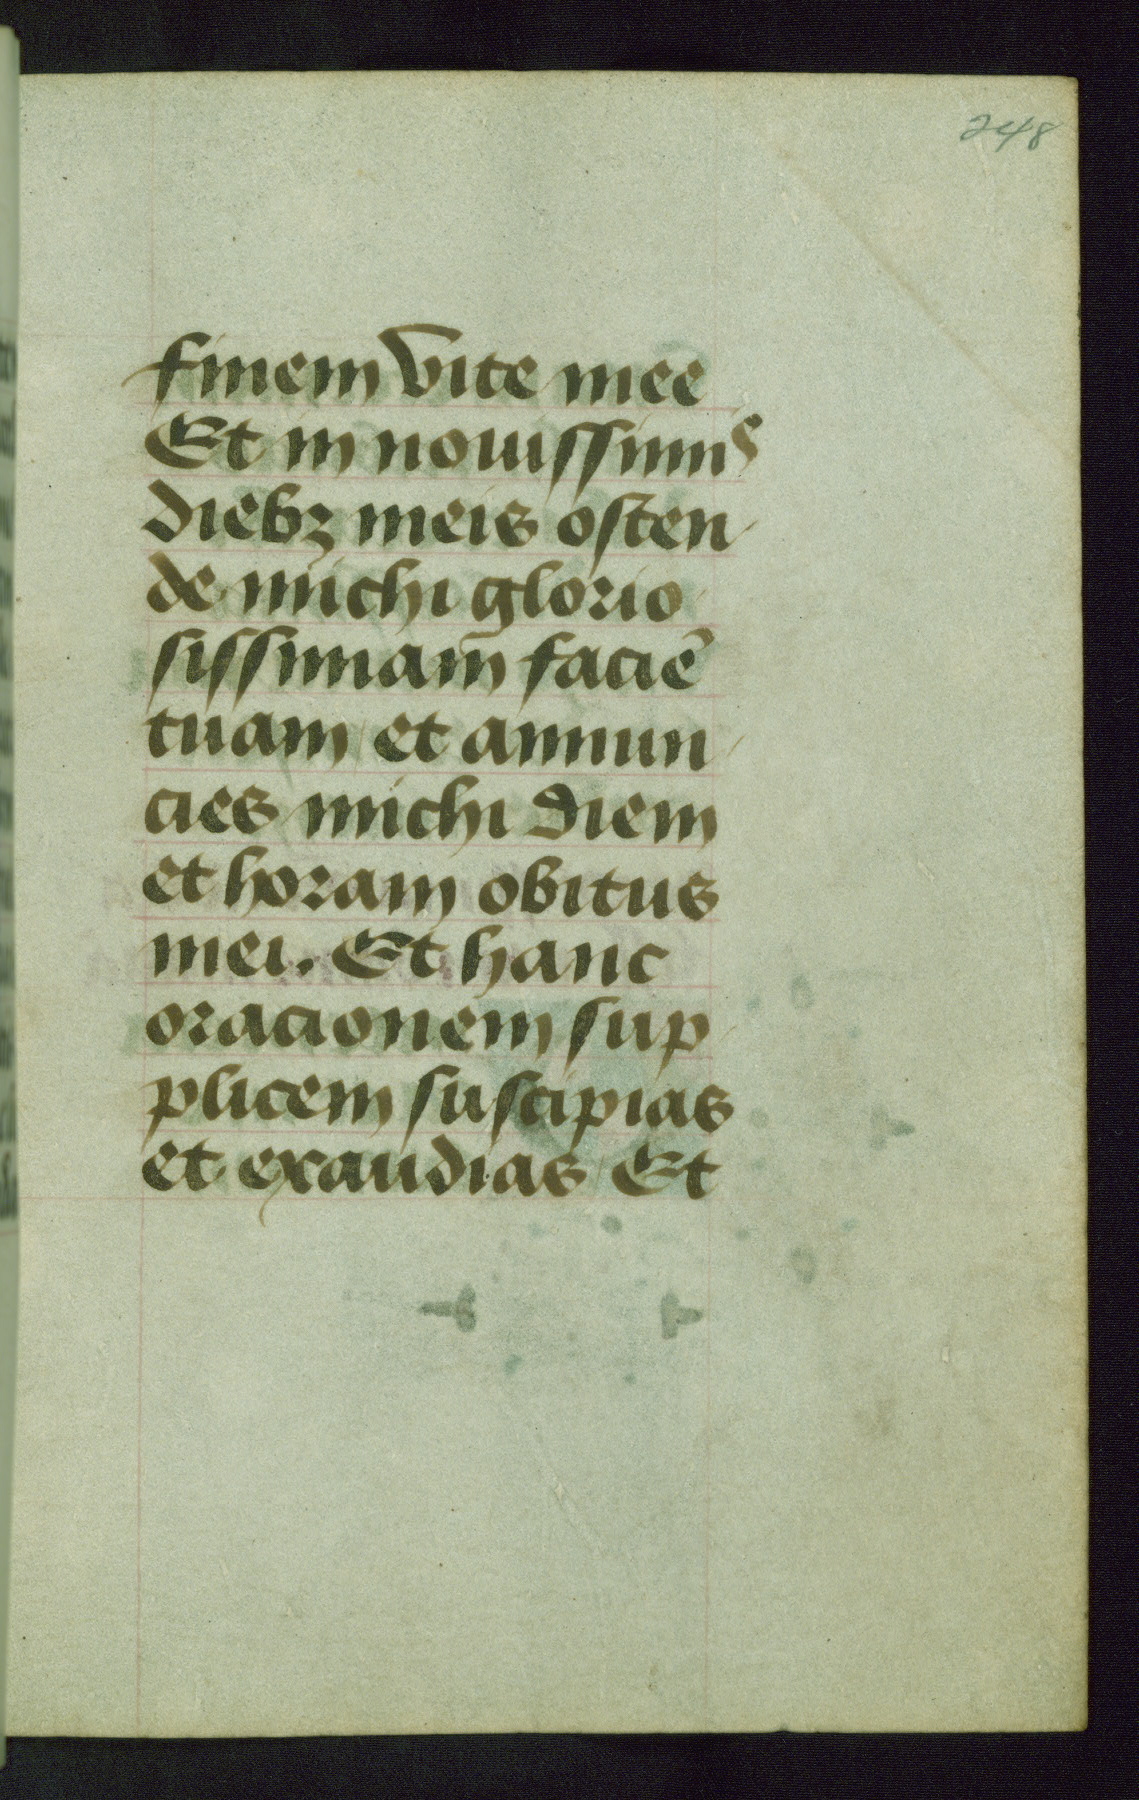 248
finem vite mee
Et in nouissimis
diebꝫ meis osten
de michi glorio
sissimam̄ faciē
tuam et annun
cies michi diem
et horam obitus
mei. Et hanc
oracionem sup
plicem suscipias
et exaudias Et